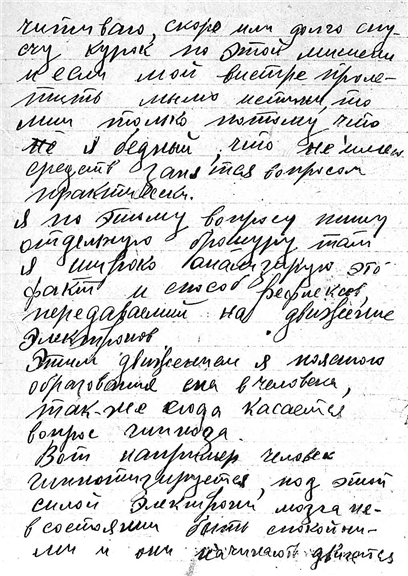 читываю, скоро или долго спу-
щу курок по этой мишени
и если мой выстрел проле-
тить мымо истины, то
мин только потому что
я бедный, что не имею
средств заня тся вопросом
практически.
я по этому вопросу пишу
отдельную брошуру там
я широко анализирую это
факт и способ рефлексов,
передаваемий на движение
электронов.
Этим движением я поясняю
образования сна в человека,
так-же сюда касается
вопрос гипноза.
Вот например человек
гипнотизируется, под этой
силой электроны мозга не-
в состоянии быть спокойны-
ми и они начинают двигатся